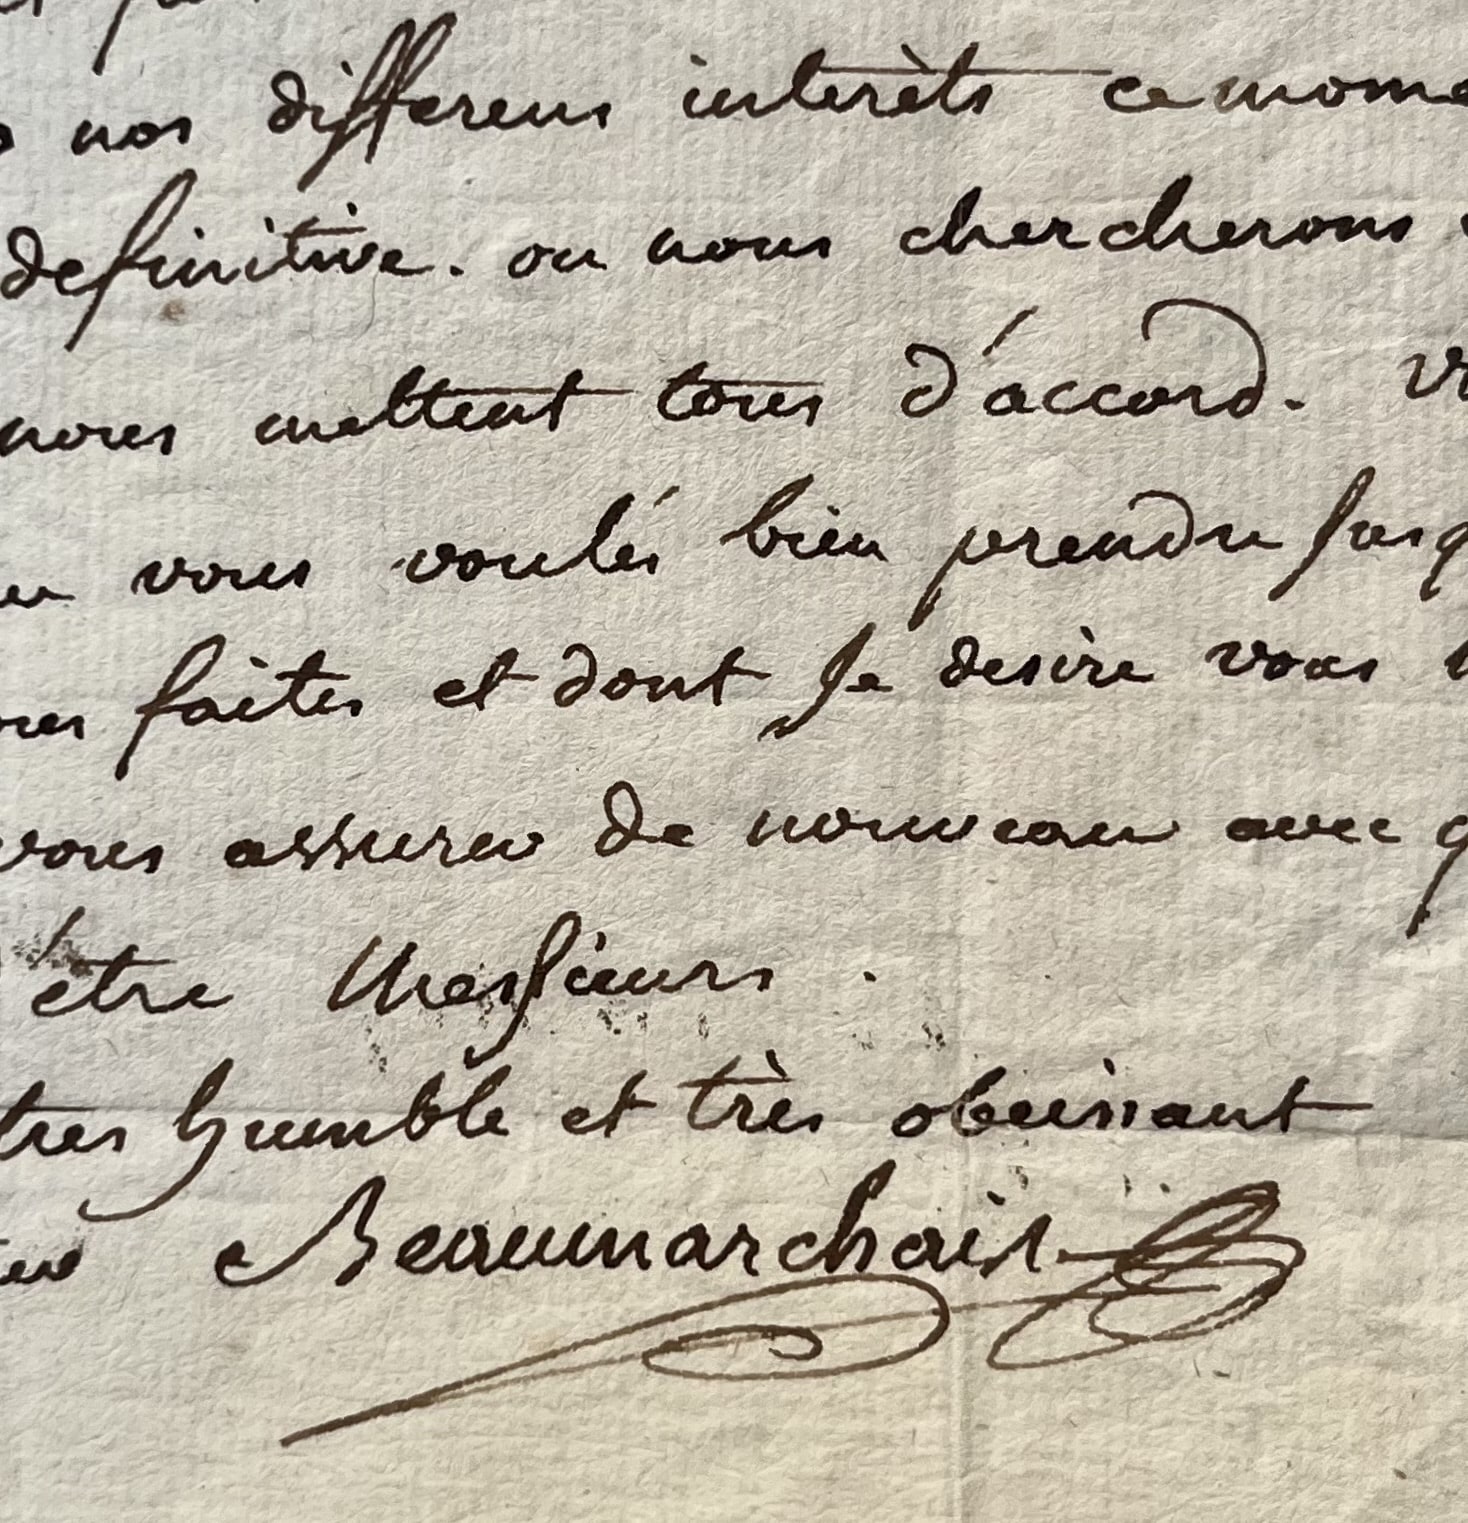 nos differens interèts ce mome
definitive. ou nous chercherons
nous mettent tous d'accord. v
vous voulés bien prendre Jusq
faites et dont Je desire vous
vous assurer de nouveau avec q
être Messieurs.
tres humble et très obeissant
Beaumarchais